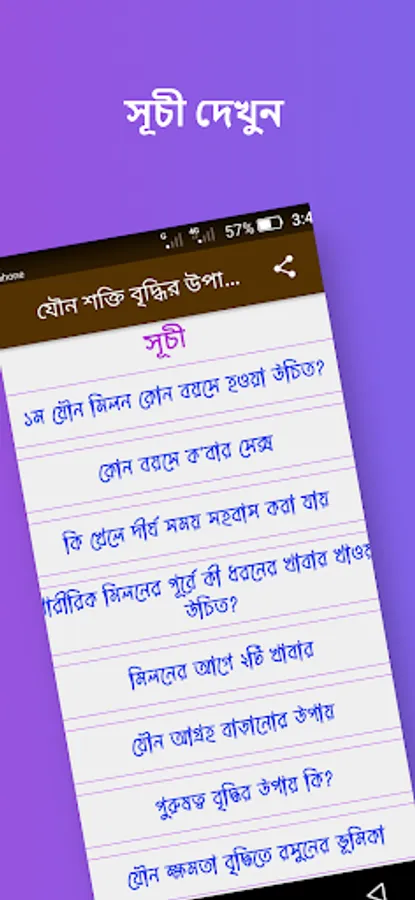 সূচী দেখুন
57% 3:4
যৌন শক্তি বৃদ্ধির উপা...
সূচী
১ম যৌন মিলন কোন বয়সে হওয়া উচিত?
কোন বয়সে ক'বার সেক্স
কি খেলে দীর্ঘ সময় সহবাস করা যায়
শারীরিক মিলনের পূর্বে কী ধরনের খাবার খাওয়া
উচিত?
মিলনের আগে ২টি খাবার
যৌন আগ্রহ বাড়ানোর উপায়
পুরুষত্ব বৃদ্ধির উপায় কি?
যৌন ক্ষমতা বৃদ্ধিতে রসুনের ভূমিকা